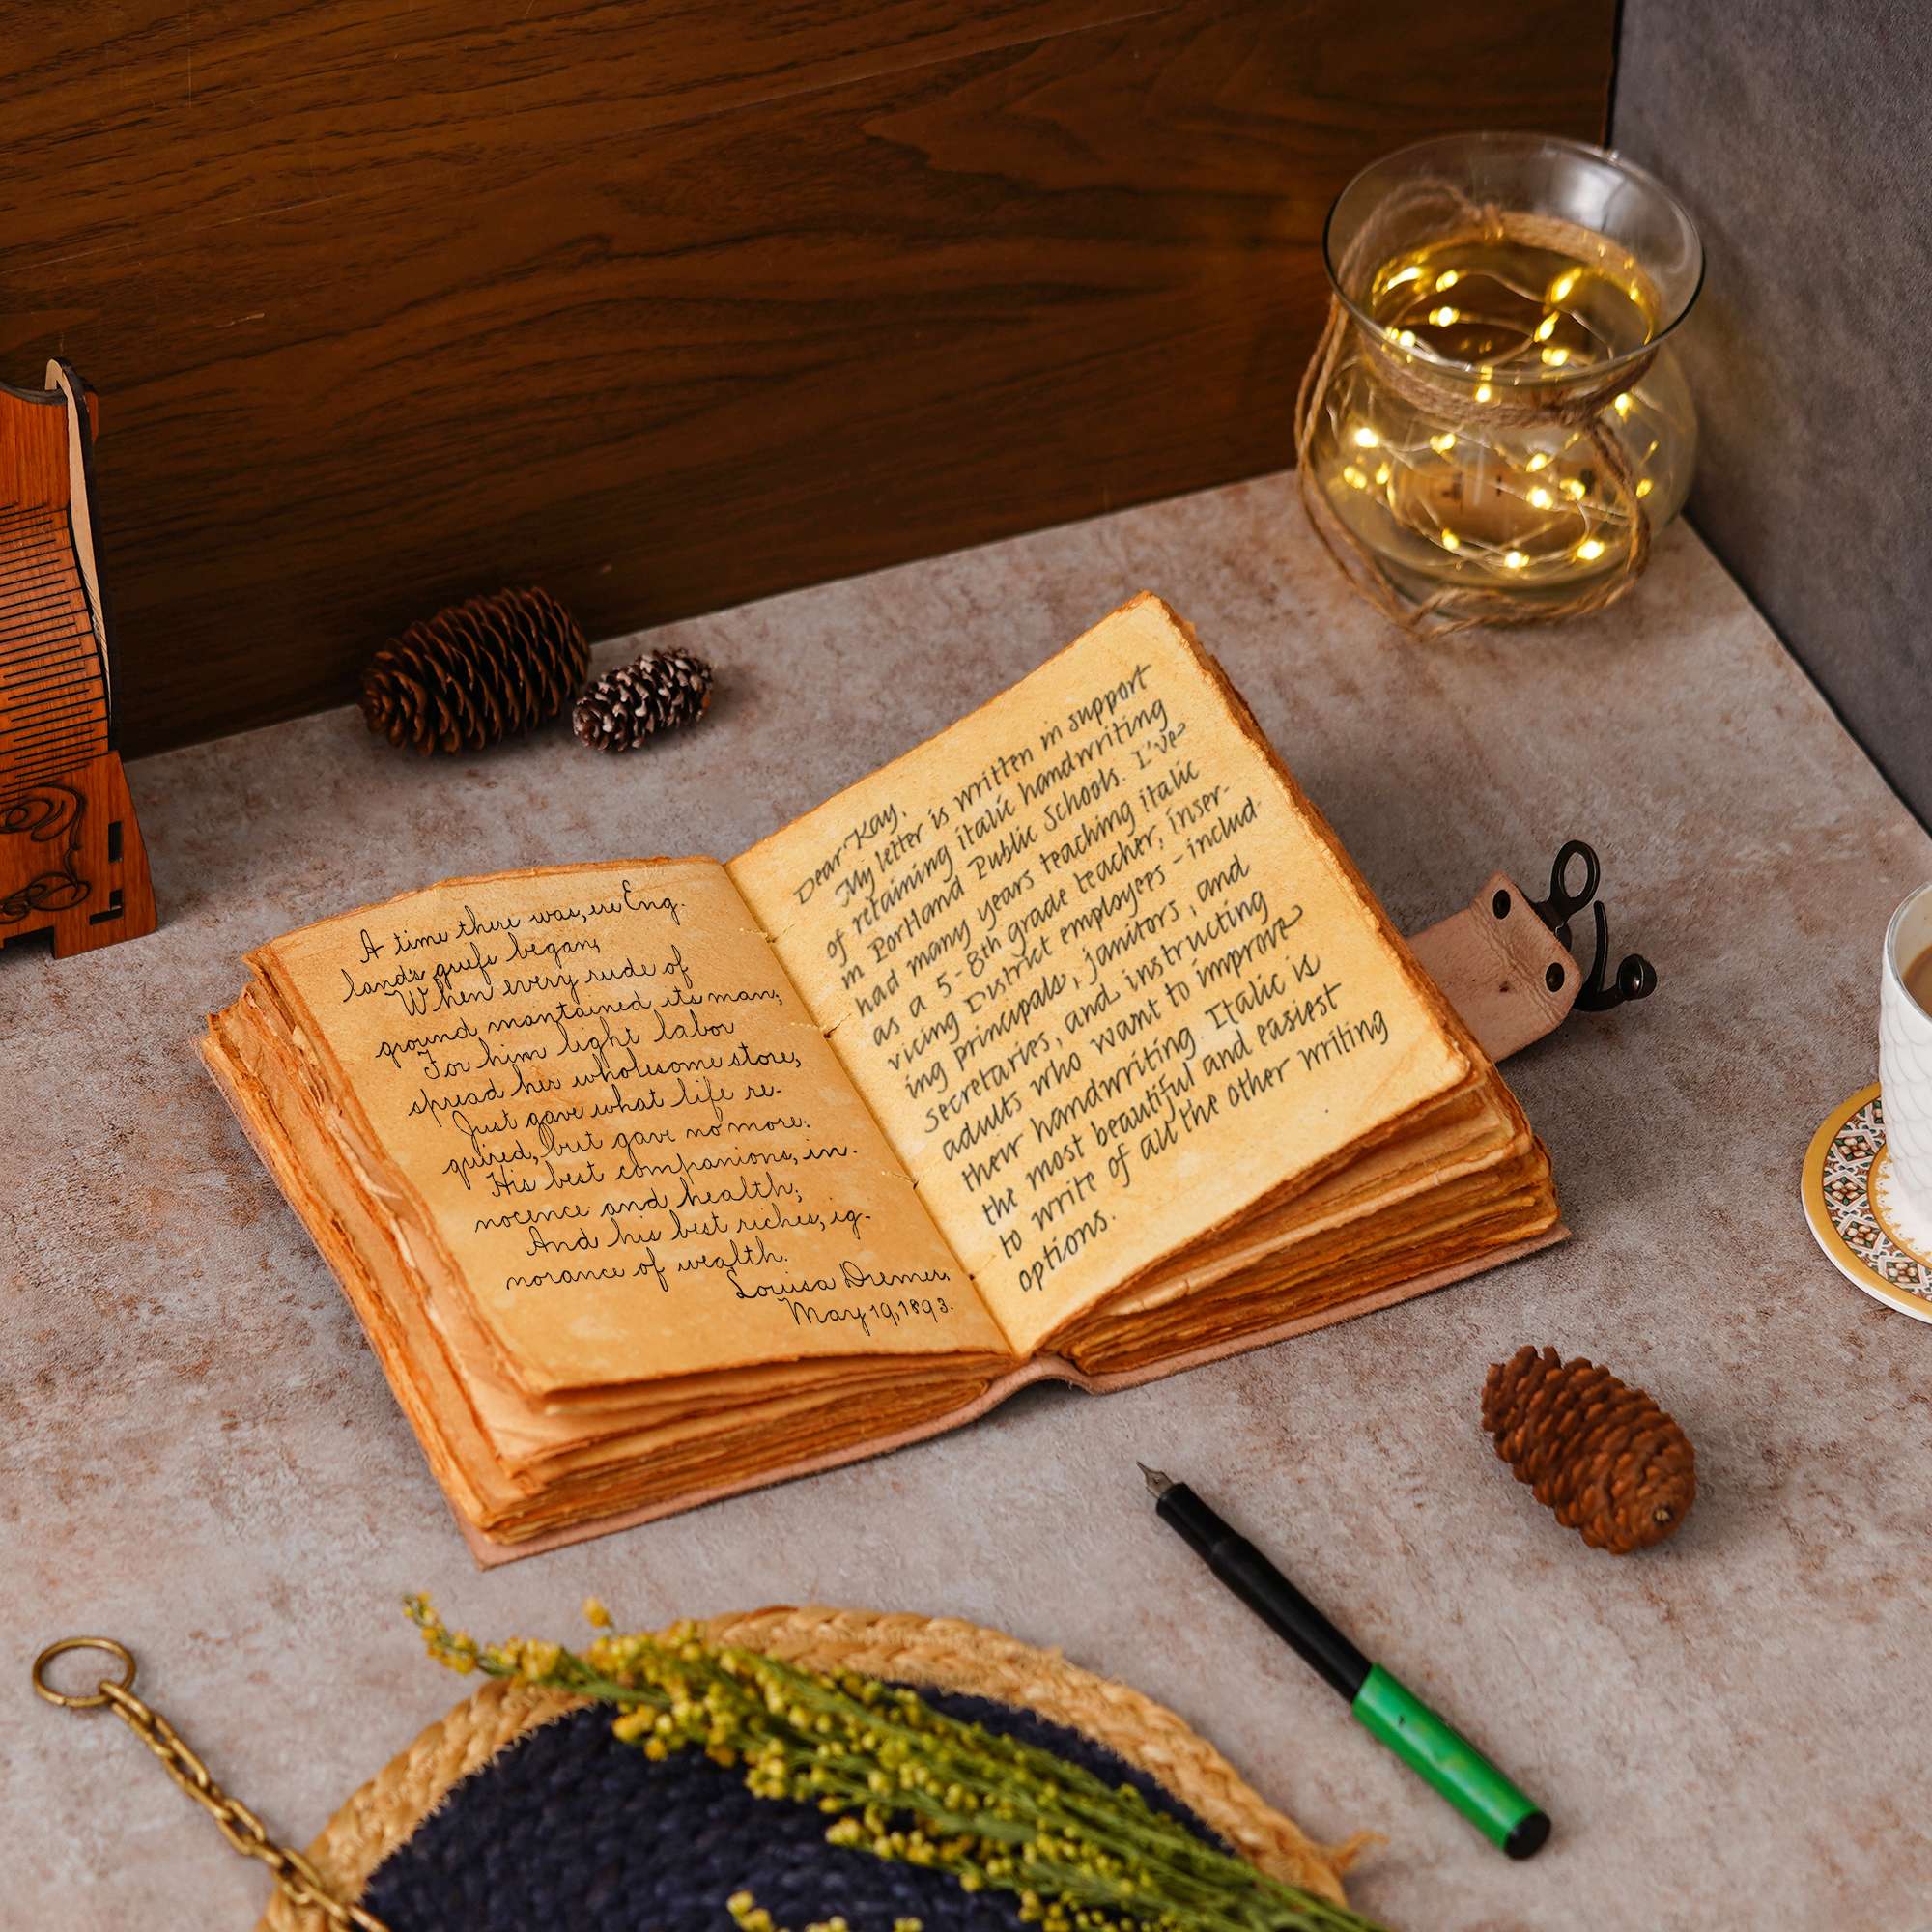 A time there was, ere Eng.
land's griefs began,
When every rude of
ground mantained its man;
For him light labor
spread her wholesome store,
Just gave what life re-
quired, but gave no more:
His best companions, in-
nocence and health;
And his best riches, ig-
norance of wealth.
Louisa Dremer,
May 19, 1893.
Dear Kay,
My letter is written in support
of retaining italic handwriting
in Portland Public Schools. I've
had many years teaching italic
as a 5-8th grade teacher, inser-
vicing District employees - includ-
ing principals, janitors, and
secretaries, and instructing
adults who want to improve
their handwriting. Italic is
the most beautiful and easiest
to write of all the other writing
options.